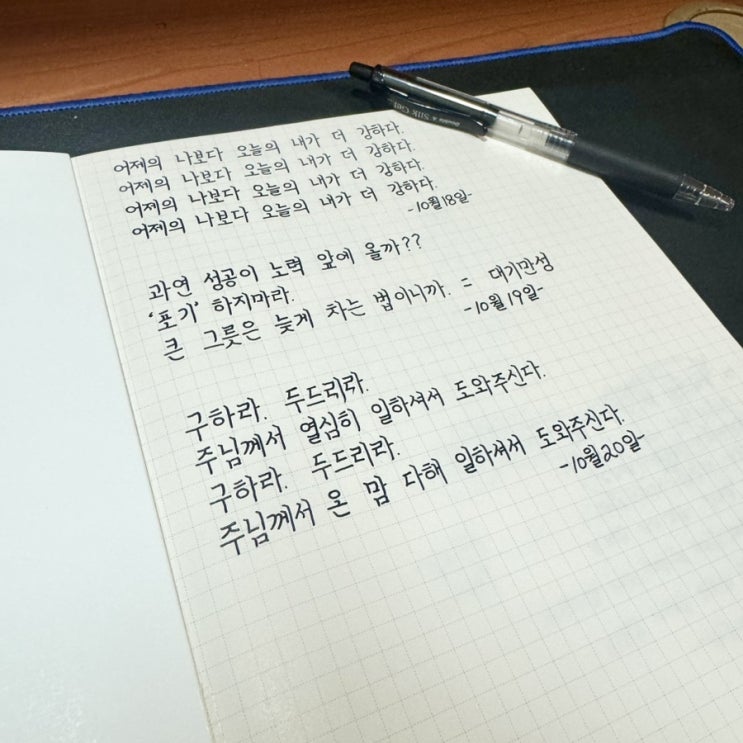 어제의 나보다 오늘의 내가 더 강하다.
어제의 나보다 오늘의 내가 더 강하다.
어제의 나보다 오늘의 내가 더 강하다.
어제의 나보다 오늘의 내가 더 강하다.
-10월18일-
과연 성공이 노력 앞에 올까??
'포기' 하지마라.
큰 그릇은 늦게 차는 법이니까. = 대기만성
-10월19일-
구하라. 두드리라.
주님께서 열심히 일하셔서 도와주신다.
구하라. 두드리라.
주님께서 온 맘 다해 일하셔서 도와주신다.
-10월20일-
Silk Gel